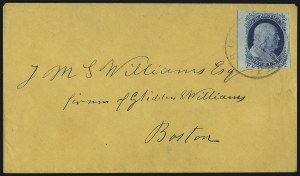 J M S Williams Esq
firm of Glidden & Williams
Boston